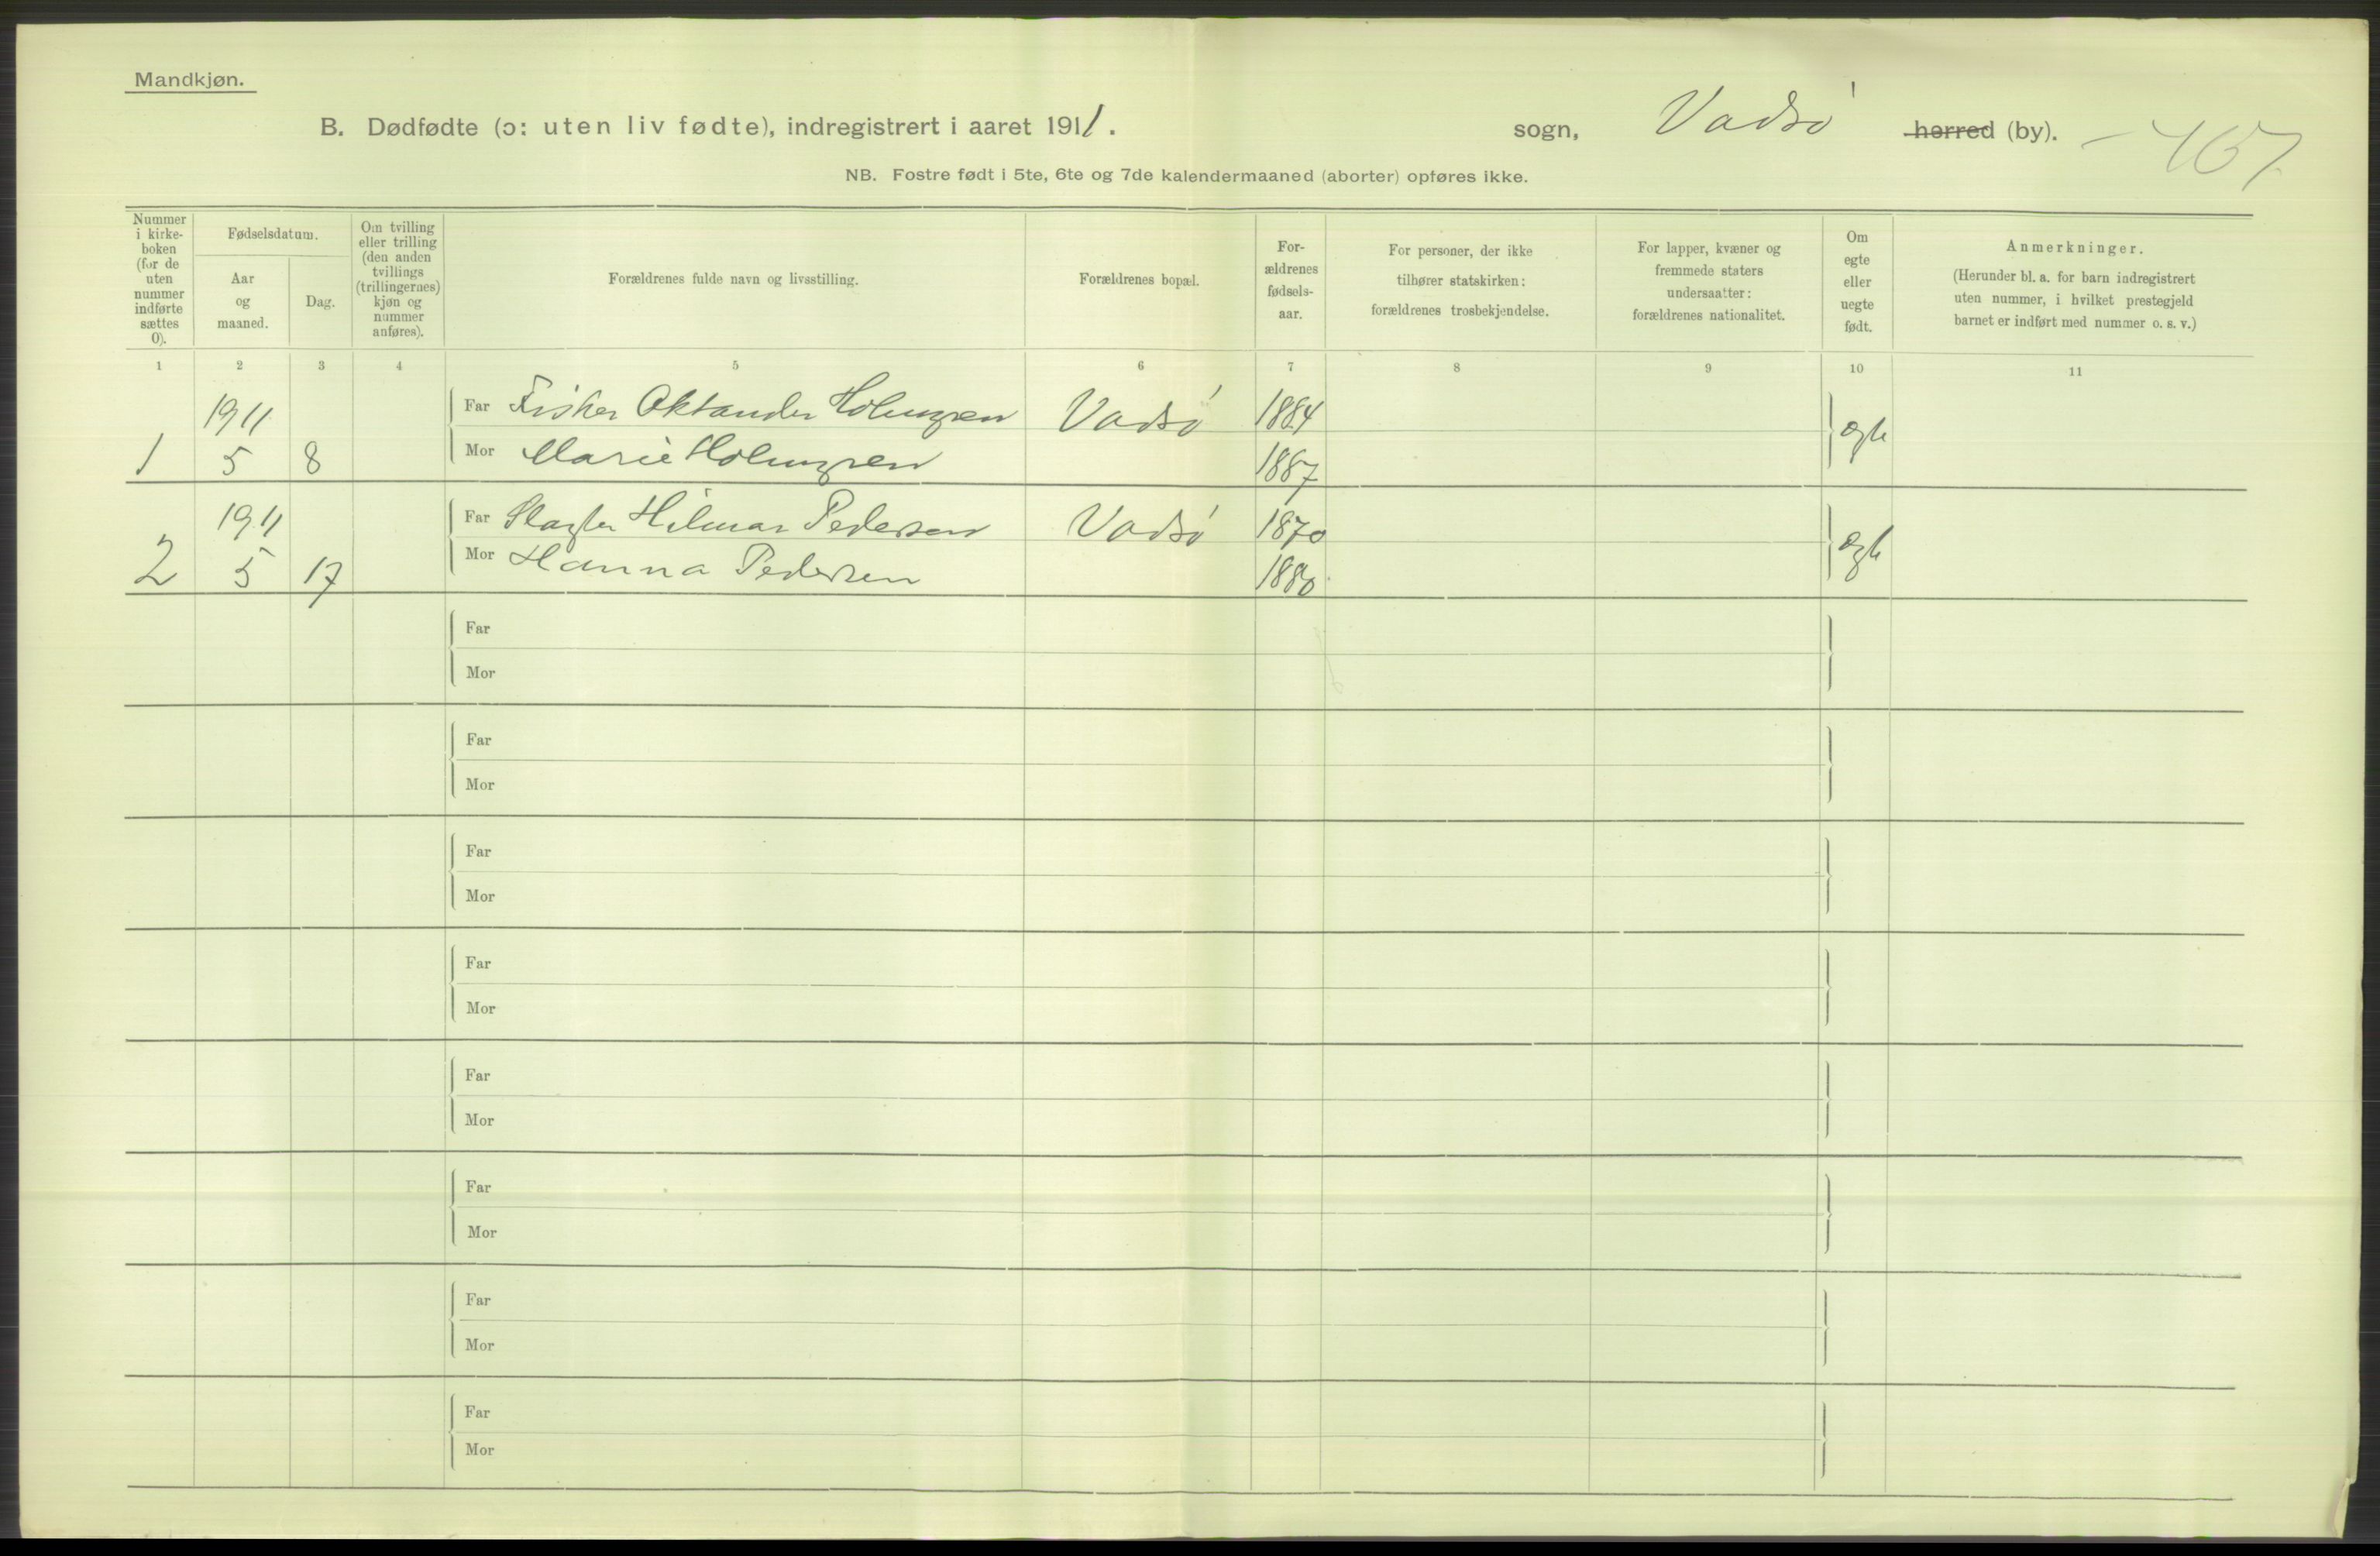 Mandkjøn.
B. Dødfødte (ɔ: uten liv fødte), indregistrert i aaret 1911. sogn, Vadsø herred (by).
NB. Fostre født i 5te, 6te og 7de kalendermaaned (aborter) opføres ikke.
Nummer
i kirke-
boken
(for de
uten
nummer
indførte
sættes
0).
Fødselsdatum.
Aar
og
maaned.
Dag.
Om tvilling
eller trilling
(den anden
tvillings
(trillingernes)
kjøn og
nummer
anføres).
Forældrenes fulde navn og livsstilling.
Forældrenes bopæl.
For-
ældrenes
fødsels-
aar.
For personer, der ikke
tilhører statskirken:
forældrenes trosbekjendelse.
For lapper, kvæner og
fremmede staters
undersaatter:
forældrenes nationalitet.
Om
egte
eller
uegte
født.
Anmerkninger.
(Herunder bl. a. for barn indregistrert
uten nummer, i hvilket prestegjeld
barnet er indført med nummer o. s. v.)
1 2 3 4 5 6 7 8 9 10 11
1911 Far Fisker Oktander Holmgren Vadsø 1884
1 5 8 Mor Marie Holmgren 1887 ægte
1911 Far Slagter Hilmar Pedersen Vadsø 1870
2 5 17 Mor Hanna Pedersen 1880 ægte
Far
Mor
Far
Mor
Far
Mor
Far
Mor
Far
Mor
Far
Mor
Far
Mor
Far
Mor